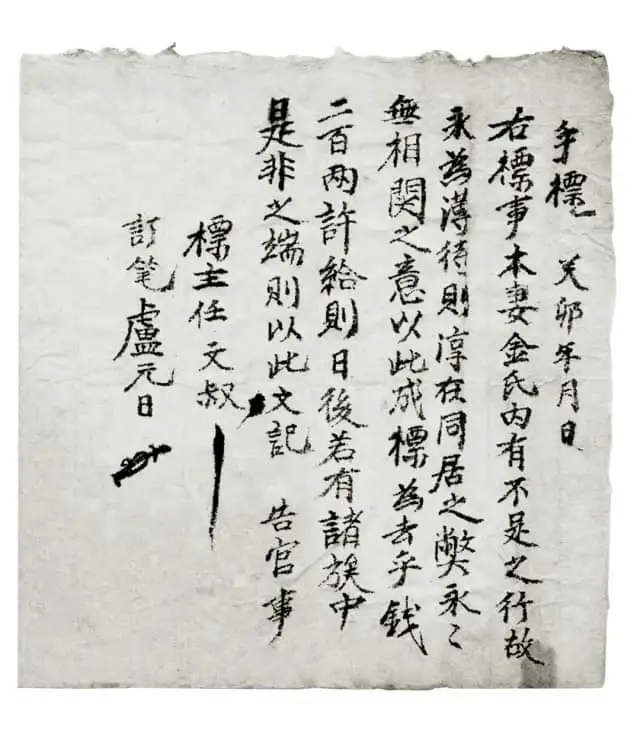 手標 癸卯年月日
右標事本妻金氏内有不足之行故
永為薄待則淳在同居之弊永〻
無相関之意以此成標為去乎錢
二百两許給則日後若有諸族中
是非之端則以此文記 告官事
標主任文叔
訂笔盧元日